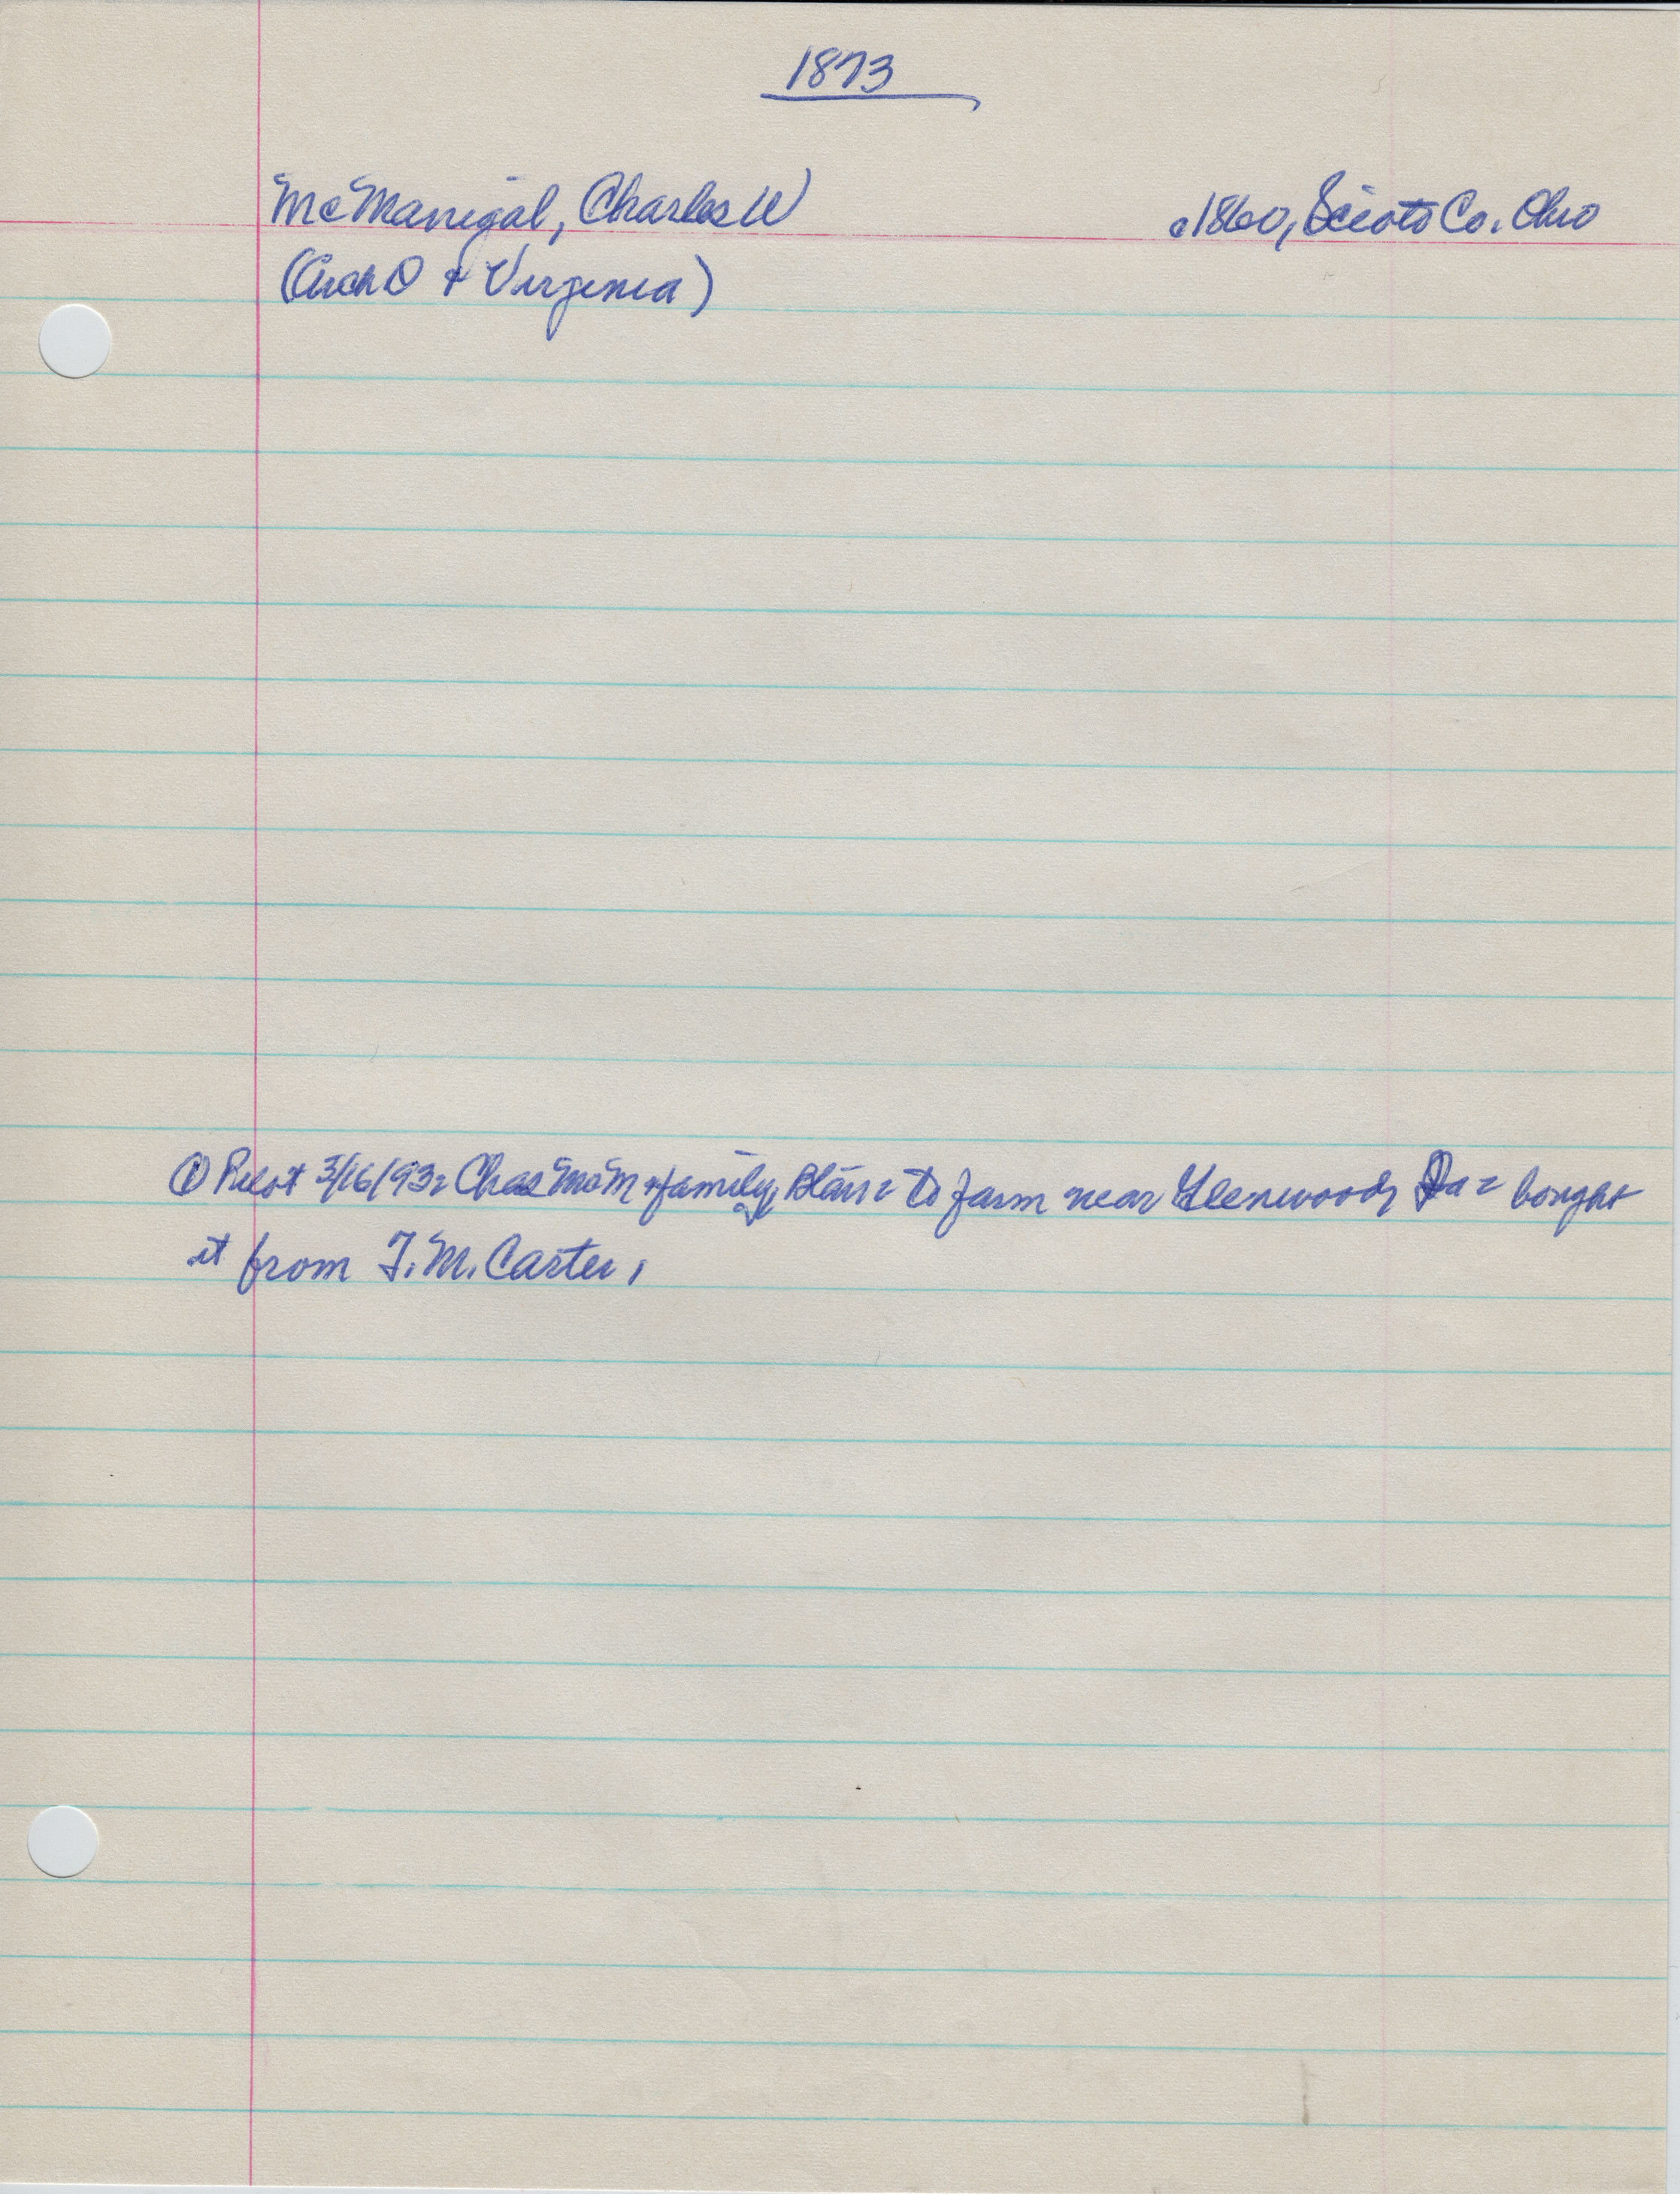 1873
McManigal, Charles W
c1860, Scioto Co. Ohio
(Arch O & Virginia)
① Pilot 3/16/93: Chas McM & family, Blair = to farm near Glenwood, Ia = bought
it from T.M. Carter,